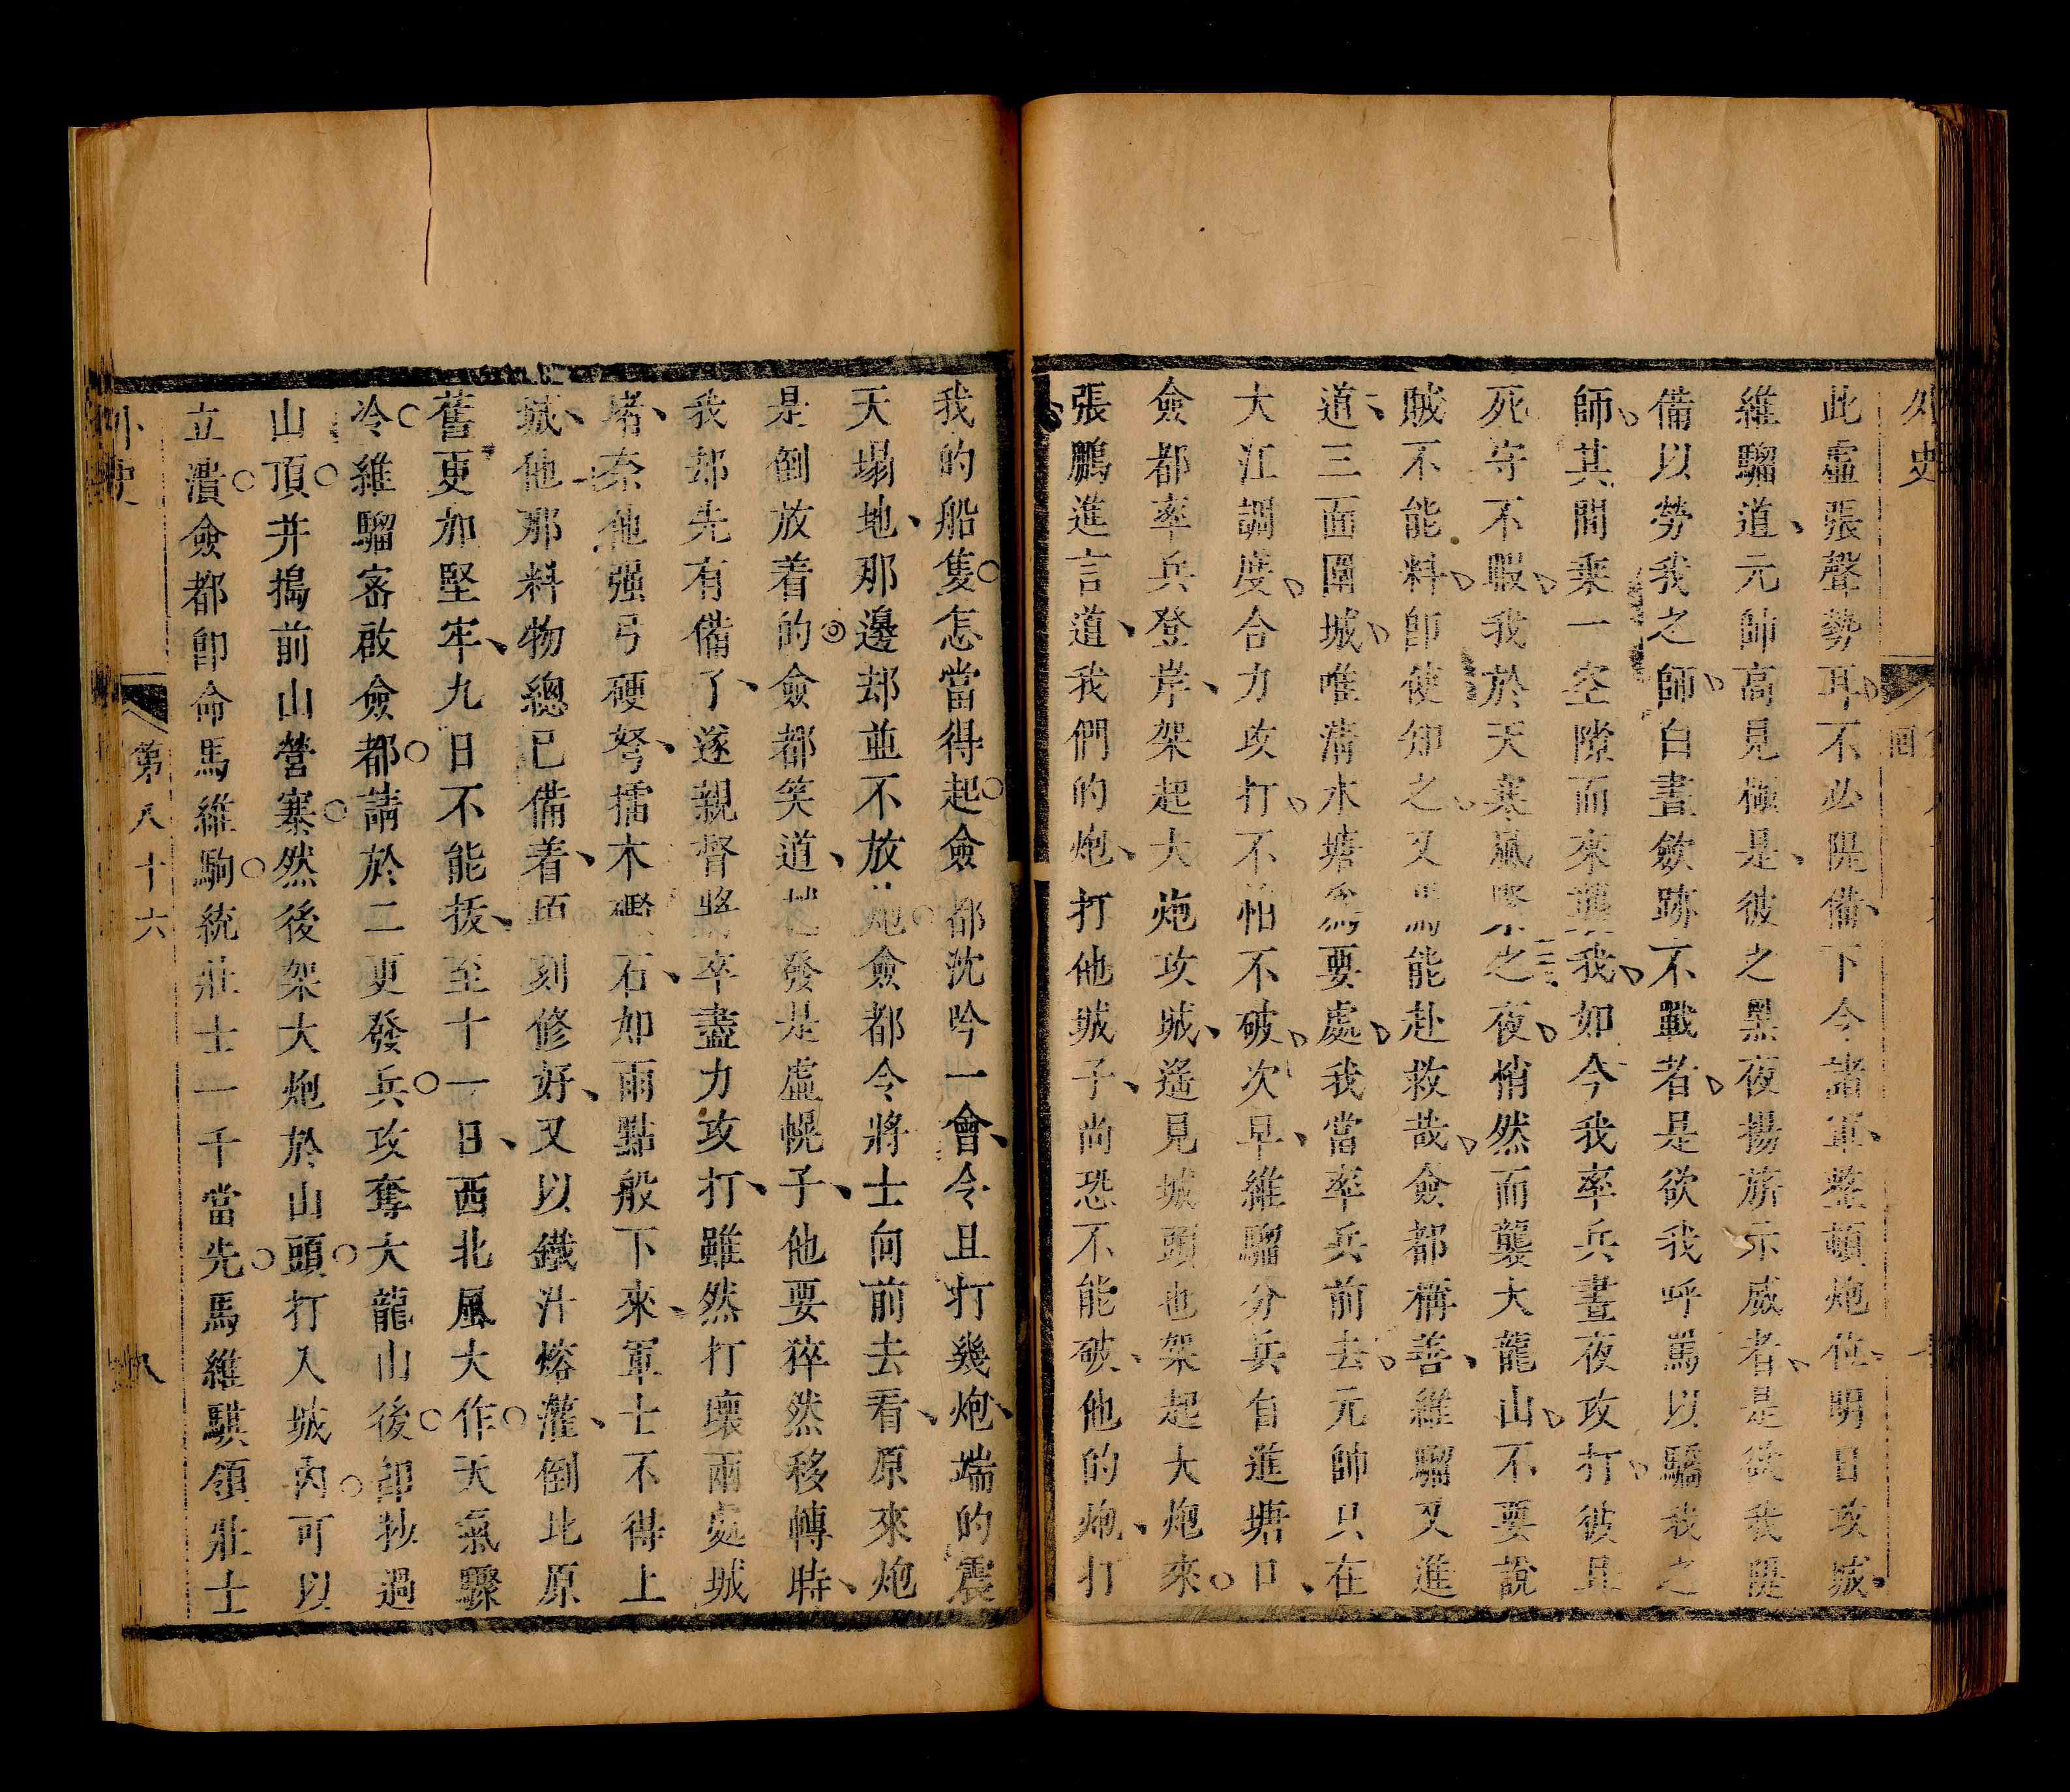 外史
回
此虛張聲勢耳不必隄備下令諸軍整頓炮位明日攻城
維騮道元帥高見極是彼之黑夜揚旂示威者是欲我隄
備以勞我之師白晝歛跡不戰者是欲我呼罵以驕我之
師其間乘一空隙而來襲我如今我率兵晝夜攻打彼且
死守不暇我於天寒風緊之夜悄然而襲大龍山不要說
賊不能料即使知之又焉能赴救哉僉都稱善維騮又進
道三面圍城唯清水塘為要處我當率兵前去元帥只在
大江調度合力攻打不怕不破次早維騮分兵自進塘口
僉都率兵登岸架起大炮攻城遙見城頭也架起大炮來
張鵬進言道我們的炮打他城子尚恐不能破他的炮打
我的船隻怎當得起僉都沈吟一會令且打幾炮端的震
天塌地那邊却並不放炮僉都令將士向前去看原來炮
是倒放着的僉都笑道發是虛幌子他要猝然移轉時
我却先有備了遂親督將卒盡力攻打雖然打壞兩處城
堵奈他强弓硬弩擂木礮石如雨點般下來軍士不得上
城他那料物總已備着頃刻修好又以鐵汁熔灌倒比原
舊更加堅牢九日不能拔至十一日西北風大作天氣驟
冷維騮密啟僉都請於二更發兵攻奪大龍山後卽抄過
山頂并搗前山營寨然後架大炮於山頭打入城內可以
立潰僉都卽命馬維駒統壯士一千當先馬維騏領壯士
外史
第八十六
八